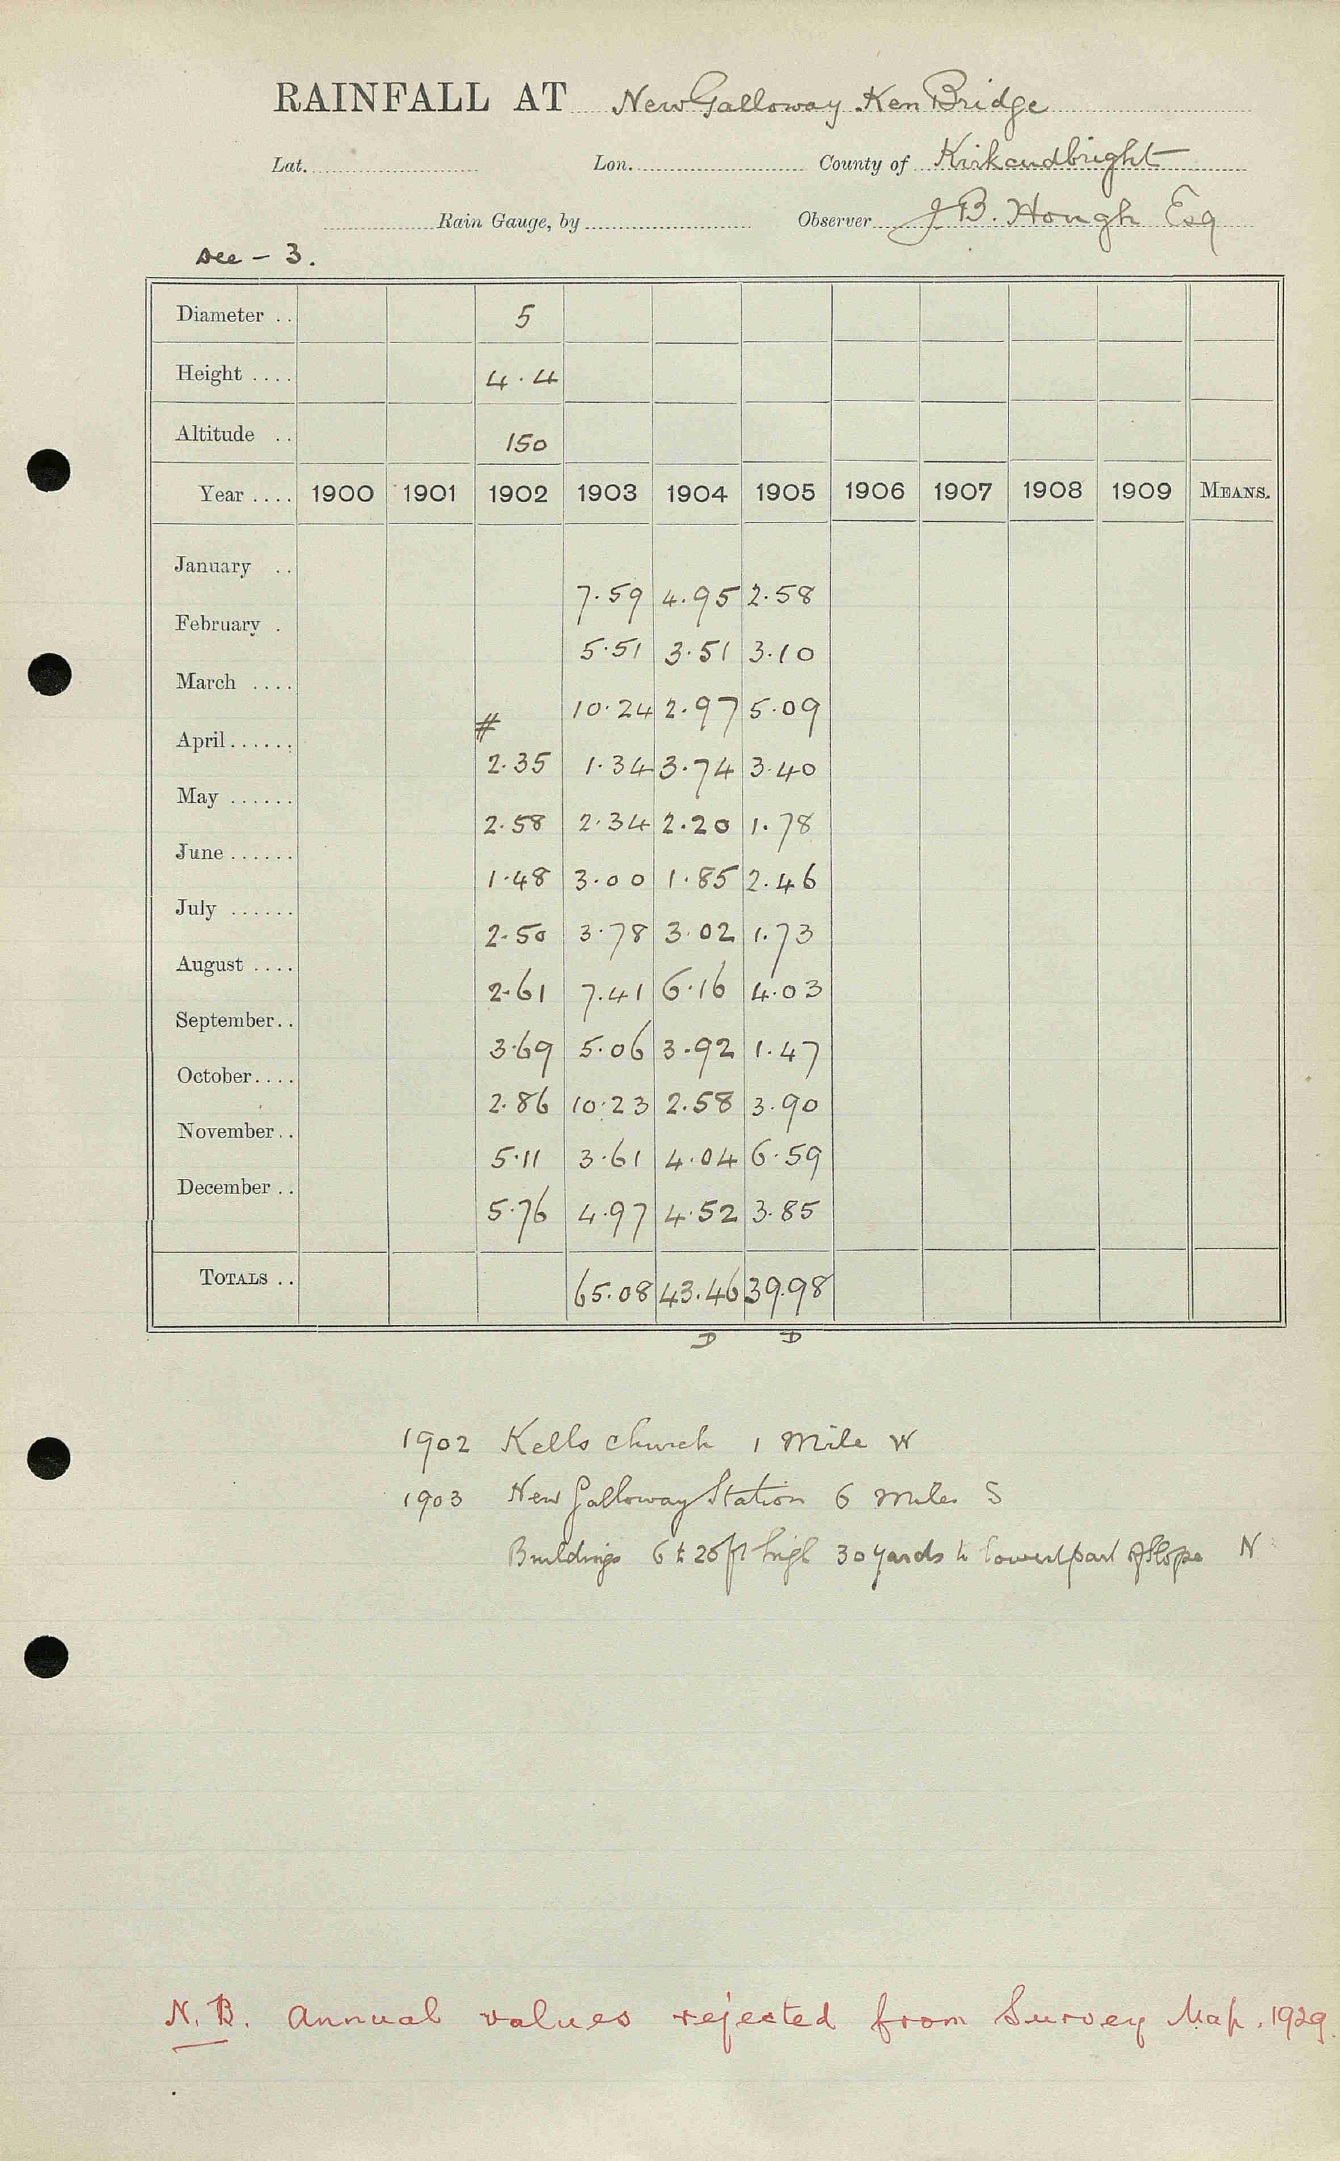 RAINFALL AT New Galloway Ken Bridge
Lat. Lon. County of Kirkcudbright
Rain Gauge, by Observer J B. Hough Esq
Dec - 3.
Diameter .. 5
Height .... 4.4
Altitude .. 150
Year .... 1900 1901 1902 1903 1904 1905 1906 1907 1908 1909 MEANS.
January .. 7.59 4.95 2.58
February . 5.51 3.51 3.10
March .... 10.24 2.97 5.09
#
April...... 2.35 1.34 3.74 3.40
May ...... 2.58 2.34 2.20 1.78
June ...... 1.48 3.00 1.85 2.46
July ...... 2.50 3.78 3.02 1.73
August .... 2.61 7.41 6.16 4.03
September.. 3.69 5.06 3.92 1.47
October.... 2.86 10.23 2.58 3.90
November.. 5.11 3.61 4.04 6.59
December .. 5.76 4.97 4.52 3.85
TOTALS .. 65.08 43.46 39.98
D D
1902 Kells church 1 Mile W
1903 New Galloway Station 6 miles S
Buildings 6 to 20 ft high 30 yards to lowest part of slope N
N.B. Annual values rejected from Survey Map. 1929.